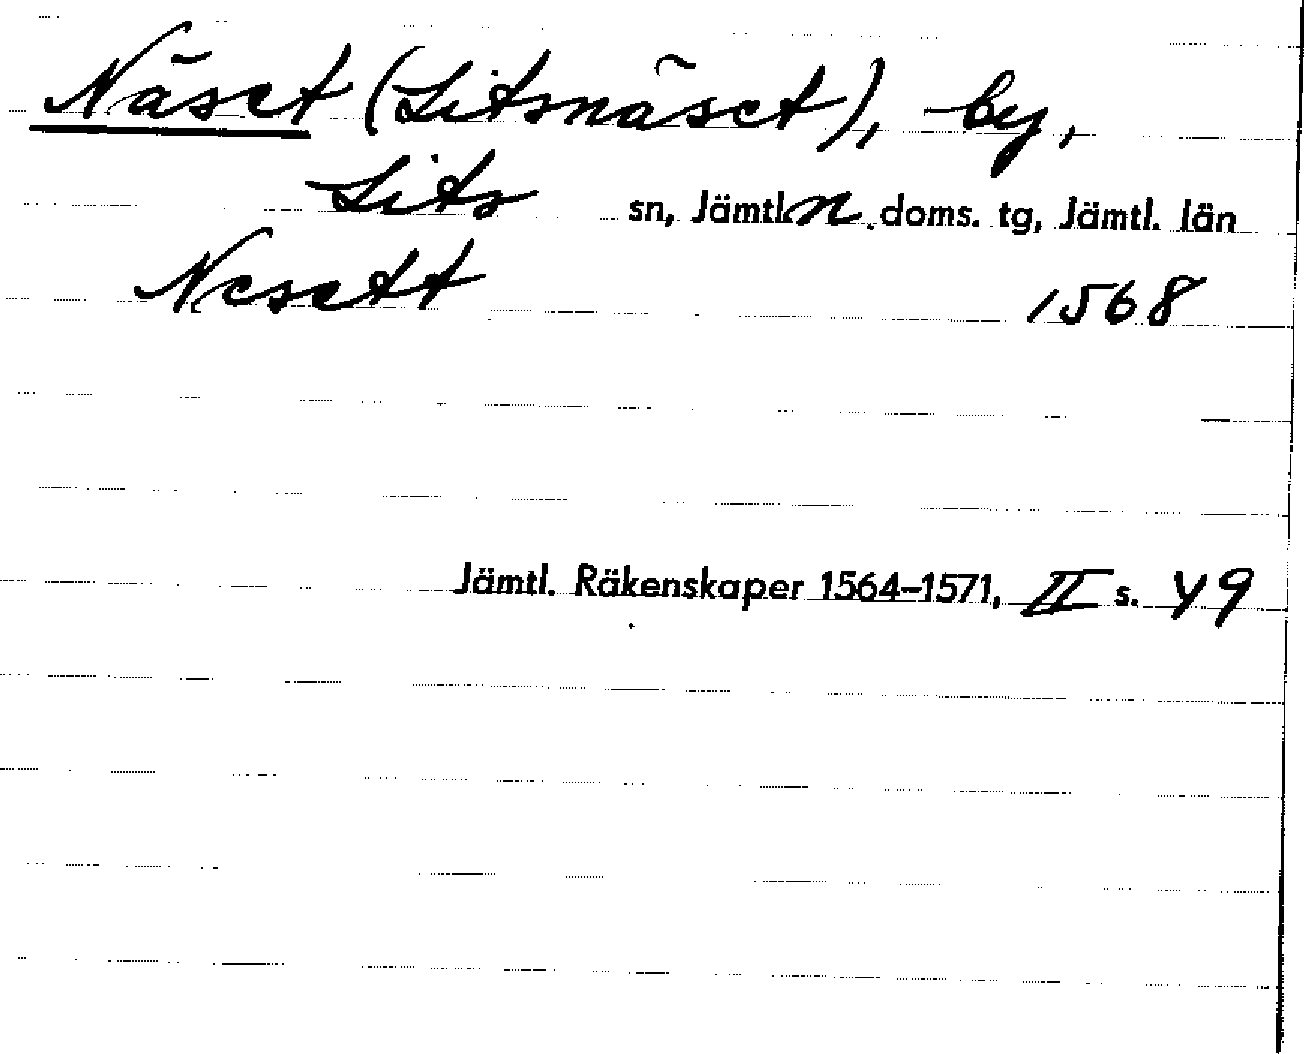 Näset (Litsnäset), by,
Lits sn, Jämtl. n. doms. tg, Jämtl. län
Nesett 1568
Jämtl. Räkenskaper 1564–1571, II s. 49